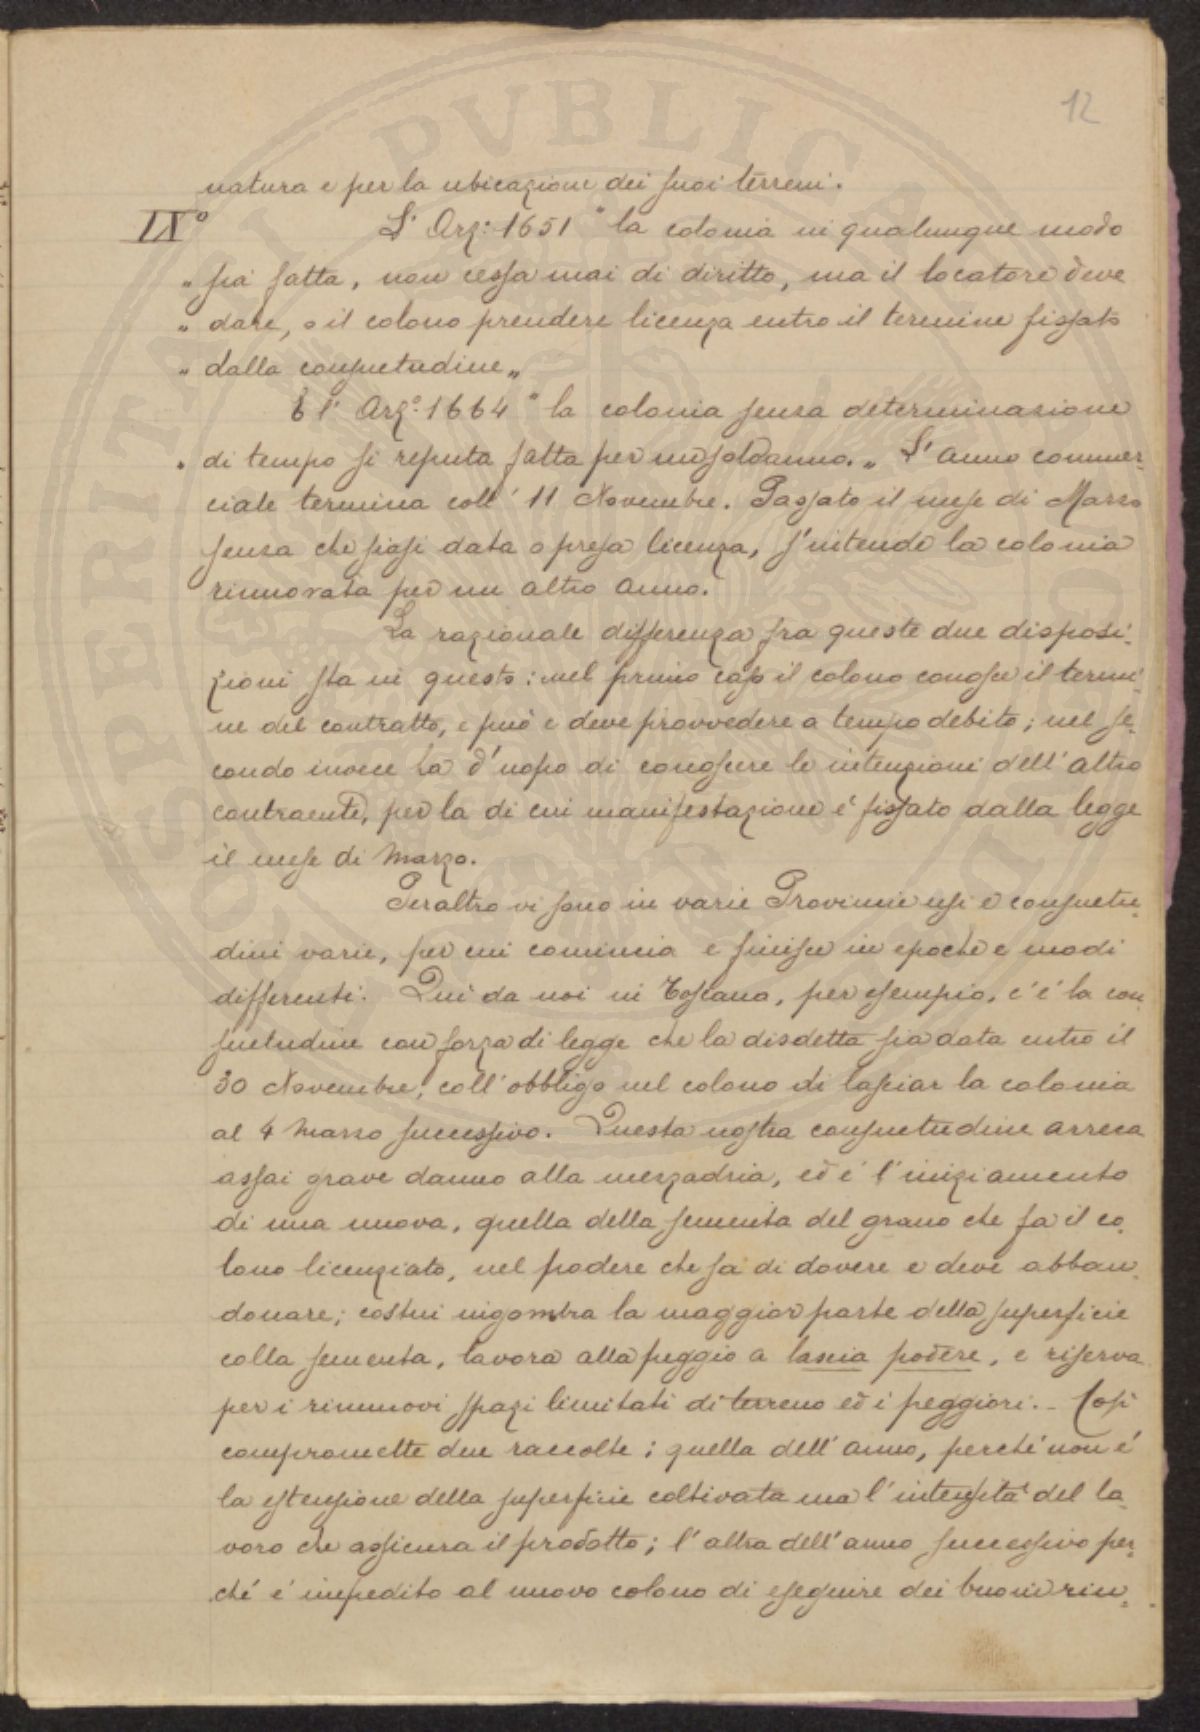 12
natura e per la ubicazione dei suoi terreni.
IXº L'Arz: 1651 "la colonia in qualunque modo
" sia fatta, non cessa mai di diritto, ma il locatore deve
" dare, o il colono prendere licenza entro il termine fissato
" dalla consuetudine„
E l'Arz.º 1664 "la colonia senza determinazione
" di tempo si reputa fatta per un solo anno.„ L'anno commer-
ciale termina coll'11 Novembre. Passato il mese di Marzo
senza che siasi data o presa licenza, s'intende la colonia
rinnovata per un altro anno.
La razionale differenza fra queste due disposi-
zioni sta in questo: nel primo caso il colono conosce il termi-
ne del contratto, e può e deve provvedere a tempo debito; nel se-
condo invece ha d'uopo di conoscere le intenzioni dell'altro
contraente, per la di cui manifestazione é fissato dalla legge
il mese di Marzo.
Peraltro vi sono in varie Provincie usi e consuetu-
dini varie, per cui comincia e finisce in epoche e modi
differenti. Quì da noi in Toscana, per esempio, c'é la con-
suetudine con forza di legge che la disdetta sia data entro il
30 Novembre, coll'obbligo nel colono di lasciar la colonia
al 4 Marzo successivo. Questa nostra consuetudine arreca
assai grave danno alla mezzadria, ed é l'iniziamento
di una nuova, quella della sementa del grano che fa il co-
lono licenziato, nel podere che sa di dovere e deve abban-
donare; costui ingombra la maggior parte della superficie
colla sementa, lavora alla peggio a lascia podere, e riserva
per i rinnuovi spazi limitati di terreno ed i peggiori. - Così
compromette due raccolte; quella dell'anno, perché non é
la estensione della superficie coltivata ma l'intensità del la-
voro che assicura il prodotto; l'altra dell'anno successivo per-
ché é impedito al nuovo colono di eseguire dei buoni rin-
PVBLICA